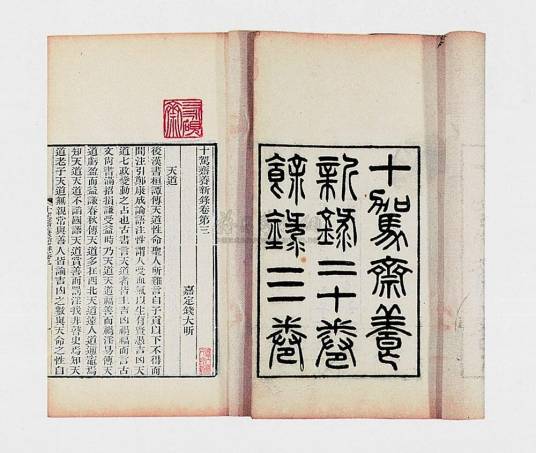 十駕齋養
新錄二十卷
餘錄三卷
十駕齋養新錄卷第三
嘉定錢大昕
天道
後漢書桓譚傳天道性命聖人所難言自子貢以下不得而
聞注引鄭康成論語注性謂人受血氣以生有賢愚吉凶天
道七政變動之占也古書言天道者皆主吉凶禍福而言古
文尚書滿招損謙受益時乃天道天道福善而禍淫易傳天
道虧盈而益謙春秋傳天道多在西北天道遠人道邇竈焉
知天道天道不謟國語天道賞善而罰淫我非瞽史焉知天
道老子天道無親常與善人皆論吉凶之數與天命之性自